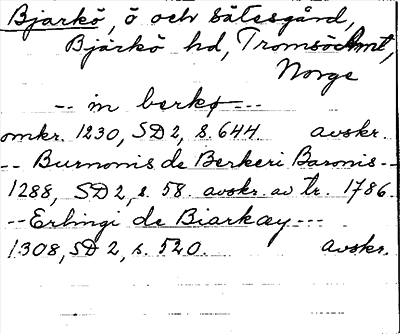 Bjarkö, ö och sätesgård,
Bjarkö hd, Tromsö Amt,
Norge
-- in berkø --
omkr. 1230, SD 2, s. 644. avskr.
-- Burnonis de Berkeri Baronis --
1288, SD 2, s. 58. avskr. av tr. 1786.
-- Erlingi de Biarkæy ---
1308, SD 2, s. 520. avskr.